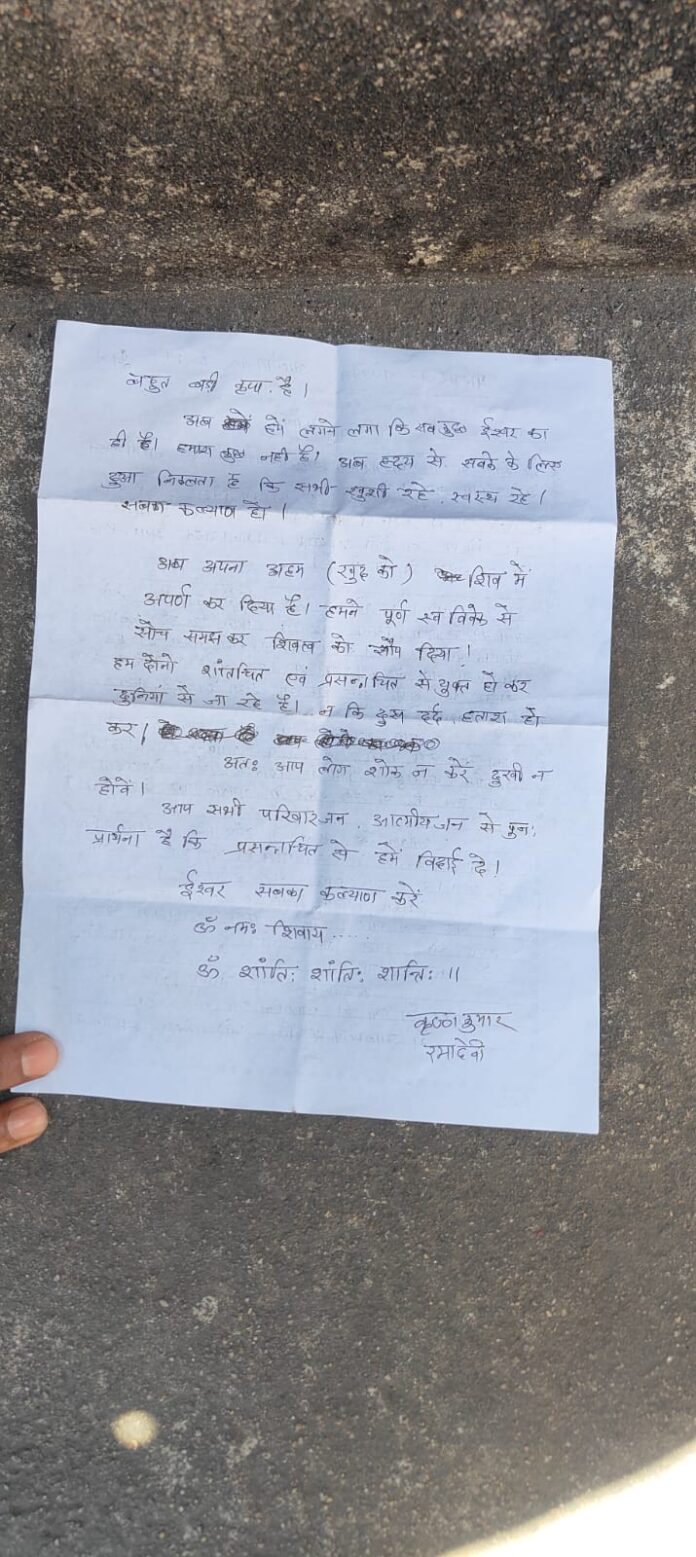 बहुत बड़ी कृपा है।
अब हमें लगने लगा कि सब कुछ ईश्वर का
ही है। हमारा कुछ नही है। अब हृदय से सबके के लिए
दुआ निकलता है कि सभी खुशी रहे, स्वस्थ रहे।
सबका कल्याण हो।
अब अपना अहम (खुद को) शिव में
अपर्ण कर दिया है। हमने पूर्ण स्व विवेक से
सोच समझ कर शिवत्व को सौप दिया!
हम दोनो शांतचित एवं प्रसन्नचित से युक्त हो कर
दुनियां से जा रहे है। न कि दुख दर्द हताश हो
कर।
अतः आप लोग शोक न करें दुखी न
होवें।
आप सभी परिवारजन, आत्मीयजन से पुनः
प्रार्थना है कि प्रसन्नचित से हमें विदाई दे!
ईश्वर सबका कल्याण करें
ॐ नमः शिवाय .....
ॐ शांतिः शांतिः शान्तिः ॥
कृष्ण कुमार
रमादेवी